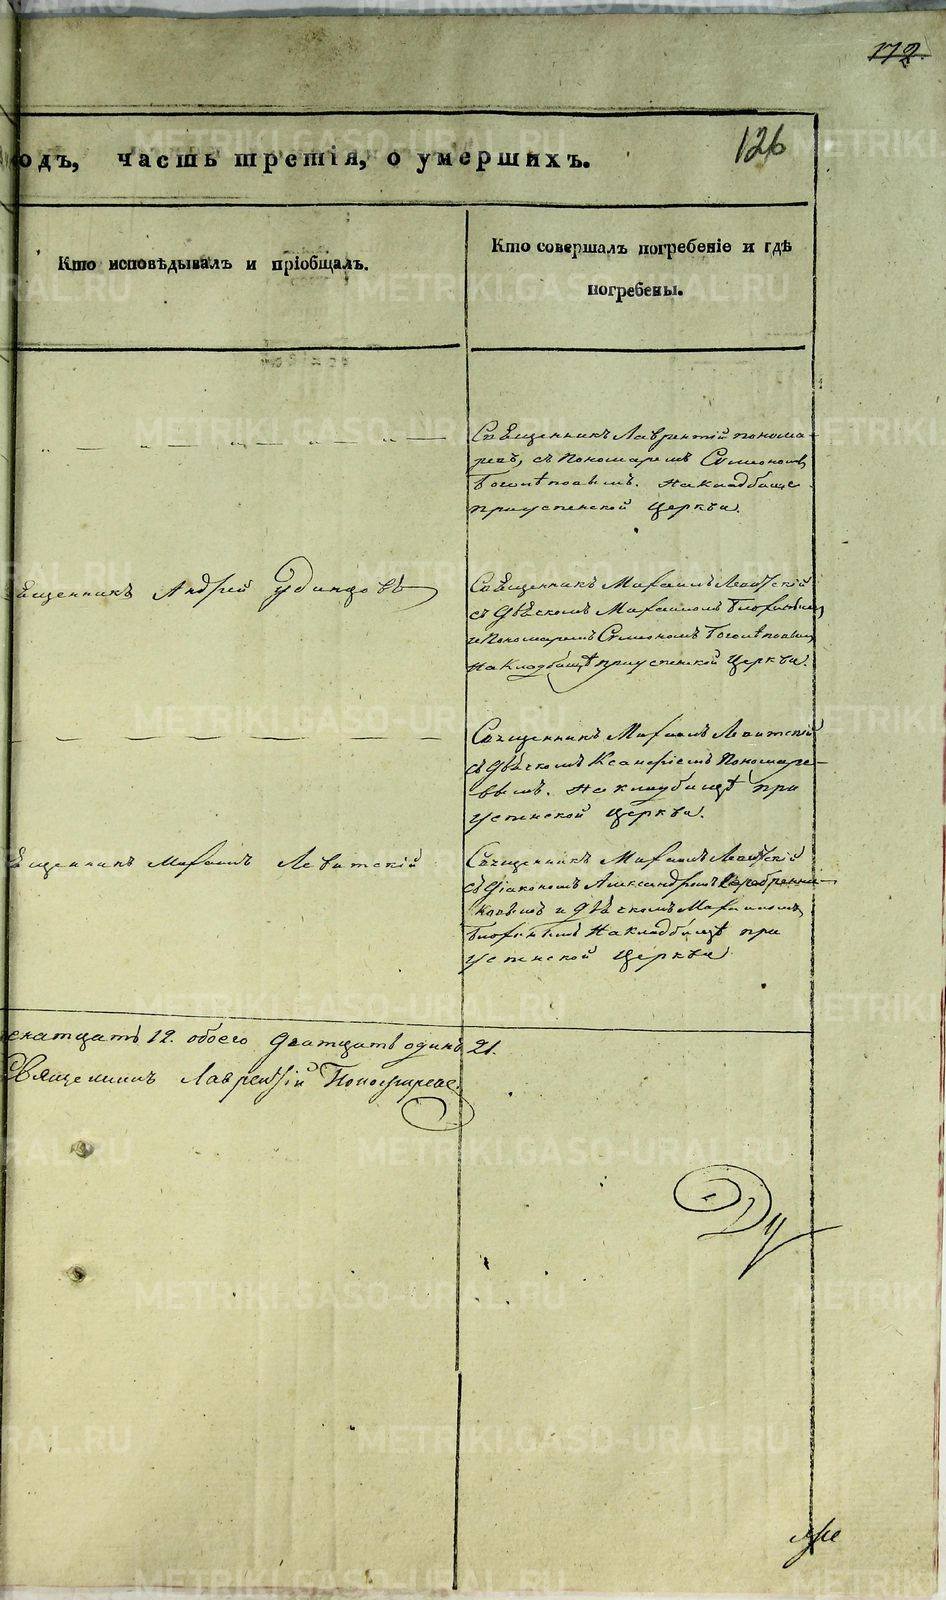 172.
126
одъ, часть третія, о умершихъ.
Кто исповѣдывалъ и пріобщалъ.
Кто совершалъ погребеніе и гдѣ
погребены.
Священникъ Лаврентій Понома-
ревъ, съ Пономаремъ Симеономъ
на кладбище
при успенской церкви.
ященникъ Андрей Удинцовъ
Священникъ Михаилъ Левитскій
съ Дьячкомъ Михаиломъ
и Пономаремъ Симеономъ
на кладбищѣ при успенской церкви.
Священникъ Михаилъ Левитскій
съ Дьячкомъ Пономаре-
вымъ. на кладбищѣ при
успенской церкви.
ященникъ Михаилъ Левитскій
Священникъ Михаилъ Левитскій
съ Діакономъ Александромъ Серебренни-
ковымъ и Дьячкомъ Михаиломъ
на кладбищѣ при
успенской церкви
12. обоего дватцать одинъ 21.
Священникъ Лаврентій Пономаревъ.
METRIKI.GASO-URAL.RU